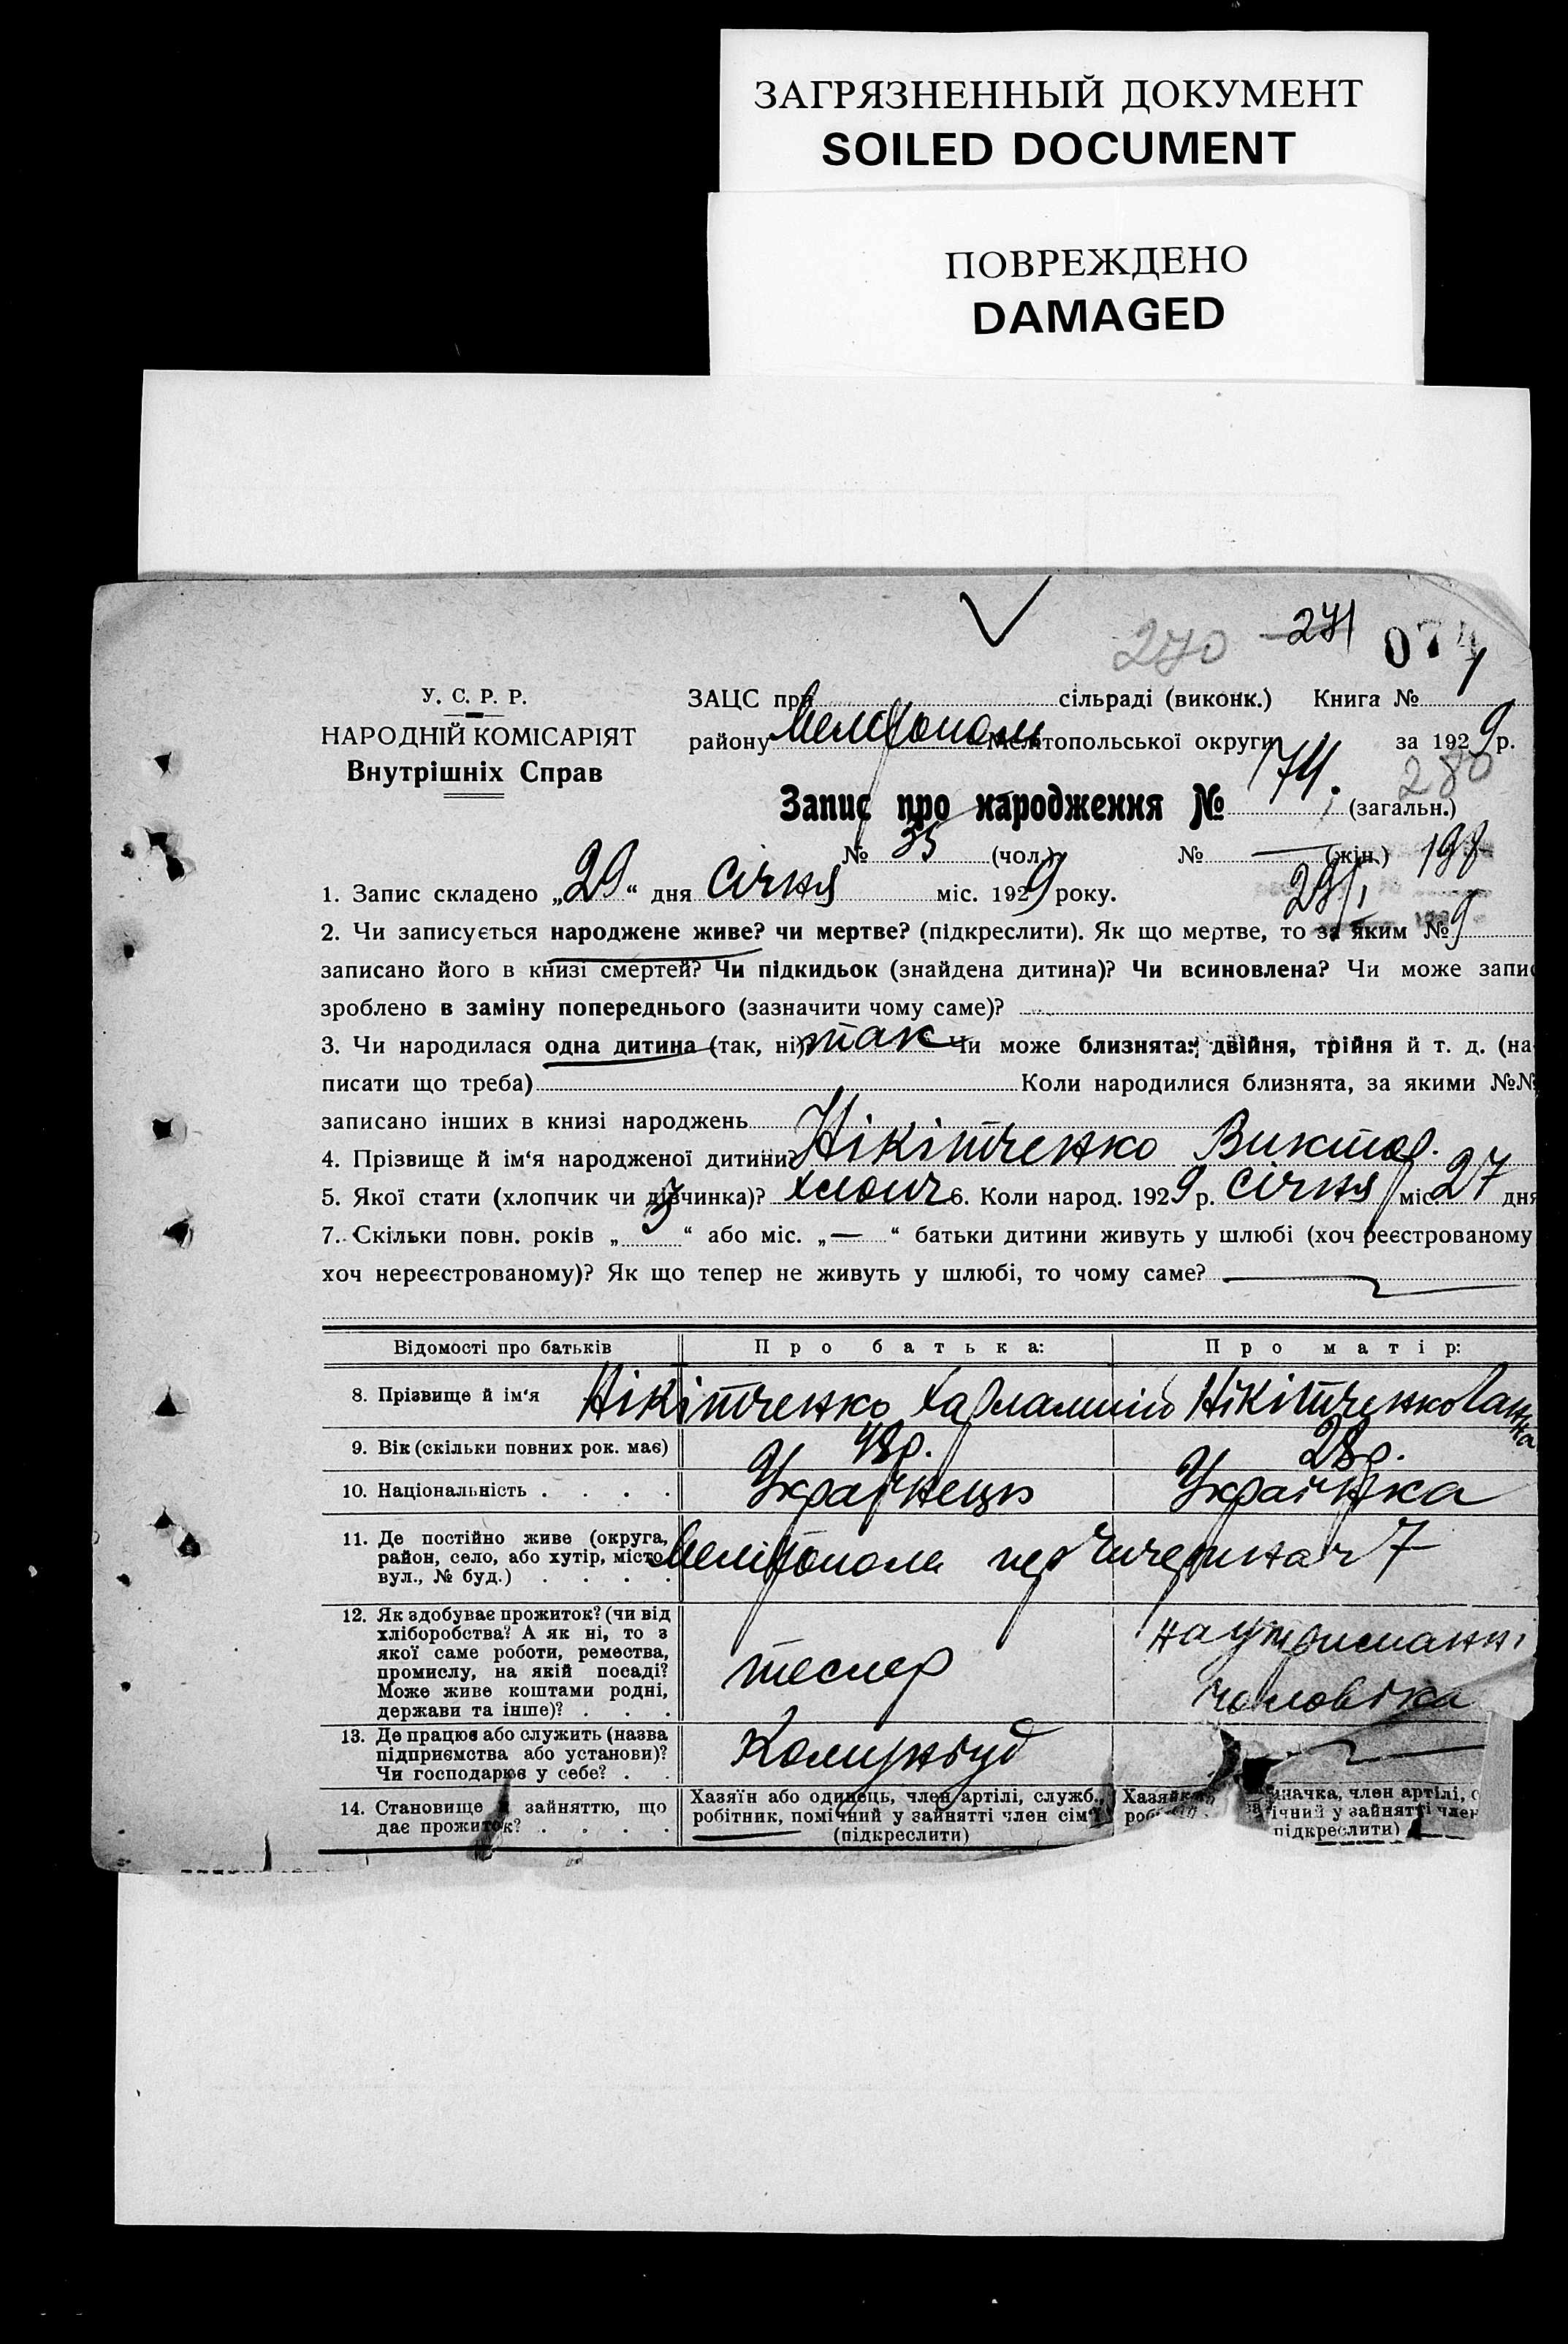 ЗАГРЯЗНЕННЫЙ ДОКУМЕНТ
SOILED DOCUMENT
ПОВРЕЖДЕНО
DAMAGED
270 271 07
У. С. Р. Р.
НАРОДНІЙ КОМІСАРІЯТ
Внутрішніх Справ
ЗАЦС при сільраді (виконк.) Книга № 1
району Мелітополь Мелітопольської округи за 1929 р.
280
Запис про народження № 174. (загальн.)
№ 35 (чол.) № — (жін.) 197
1. Запис складено „29“ дня Січня міс. 1929 року.
29/I
2. Чи записується народжене живе? чи мертве? (підкреслити). Як що мертве, то за яким №
записано його в книзі смертей? Чи підкидьок (знайдена дитина)? Чи всиновлена? Чи може запис
зроблено в заміну попереднього (зазначити чому саме)?
3. Чи народилася одна дитина (так, ні)? так Чи може близнята: двійня, трійня й т. д. (на-
писати що треба) Коли народилися близнята, за якими №№
записано інших в книзі народжень
4. Прізвище й ім‘я народженої дитини? Нікітченко Виктор.
5. Якої стати (хлопчик чи дівчинка)? хлопч 6. Коли народ. 1929 р. Січня міс. 27 дня
7. Скільки повн. років „3“ або міс. „—“ батьки дитини живуть у шлюбі (хоч реєстрованому
хоч нереєстрованому)? Як що тепер не живуть у шлюбі, то чому саме? —
Відомості про батьків Про батька: Про матір:
8. Прізвище й ім‘я Нікітченко Харлампий Нікітченко Ганна
9. Вік (скільки повних рок. має) 28р.
10. Національність . . . . Українець Українка
11. Де постійно живе (округа,
район, село, або хутір, місто
вул., № буд.) . . . . Мелітополь пер Чичерина ч 7
12. Як здобуває прожиток? (чи від
хліборобства? А як ні, то з
якої саме роботи, ремества,
промислу, на якій посаді?
Може живе коштами родні,
держави та інше)? . . . тесляр на утриманні
чоловіка
13. Де працює або служить (назва
підприємства або установи)?
Чи господарює у себе? . . Комунбуд —
14. Становище зайняттю, що
дає прожиток? . . . .
Хазяїн або одинець, член артілі, служб.,
робітник, помічний у зайнятті член сім‘ї
(підкреслити)
Хазяйка член артілі,
у зайнятті член
підкреслити)